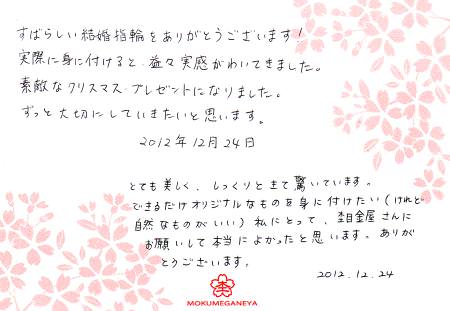 すばらしい結婚指輪をありがとうございます!
実際に身に付けると 益々実感がわいてきました。
素敵なクリスマス・プレゼントになりました。
ずっと大切にしていきたいと思います。
2012年12月24日
とても美しく、しっくりときて驚いています。
できるだけオリジナルなものを身に付けたい(けれど
自然なものがいい)私にとって、杢目金屋さんに
お願いして本当によかったと思います。ありが
とうございます。
2012.12.24
杢
MOKUMEGANEYA